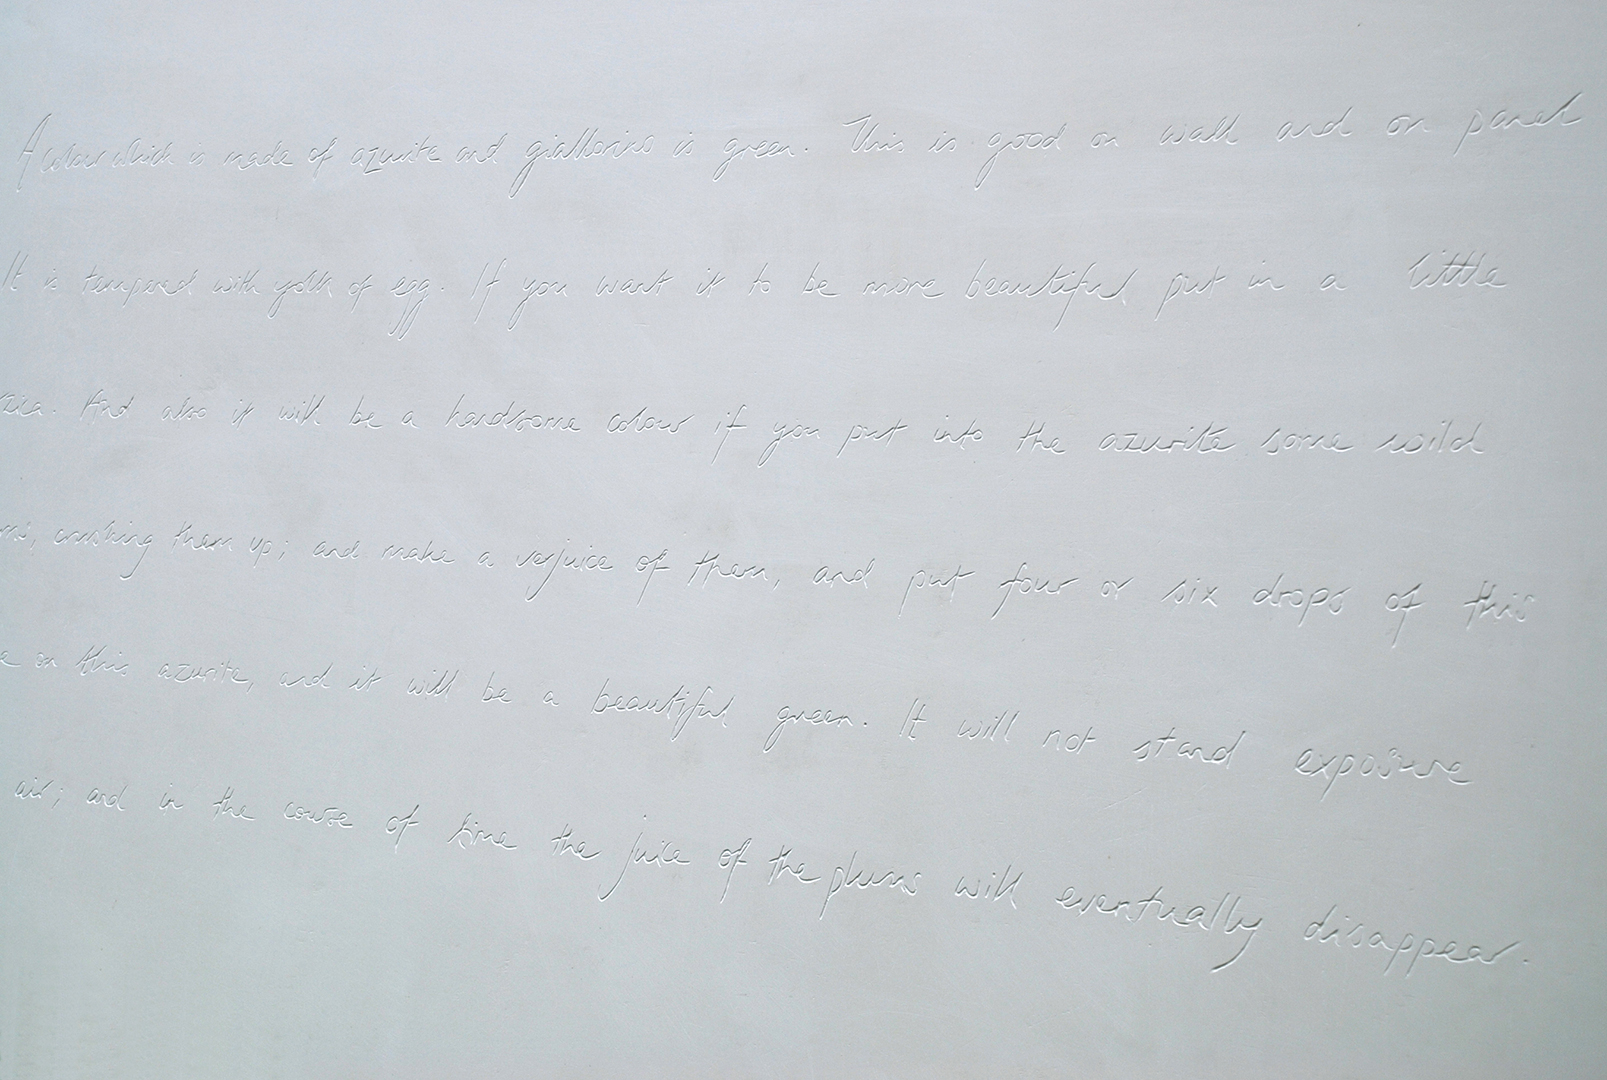 A colour which is made of azurite and giallorino is green. This is good on wall and on panel
It is tempered with yolk of egg. If you want it to be more beautiful put in a little
And also it will be a handsome colour if you put into the azurite some wild
crushing them up; and make a verjuice of them, and put four or six drops of this
on this azurite, and it will be a beautiful green. It will not stand exposure
air; and in the course of time the juice of the plums will eventually disappear.